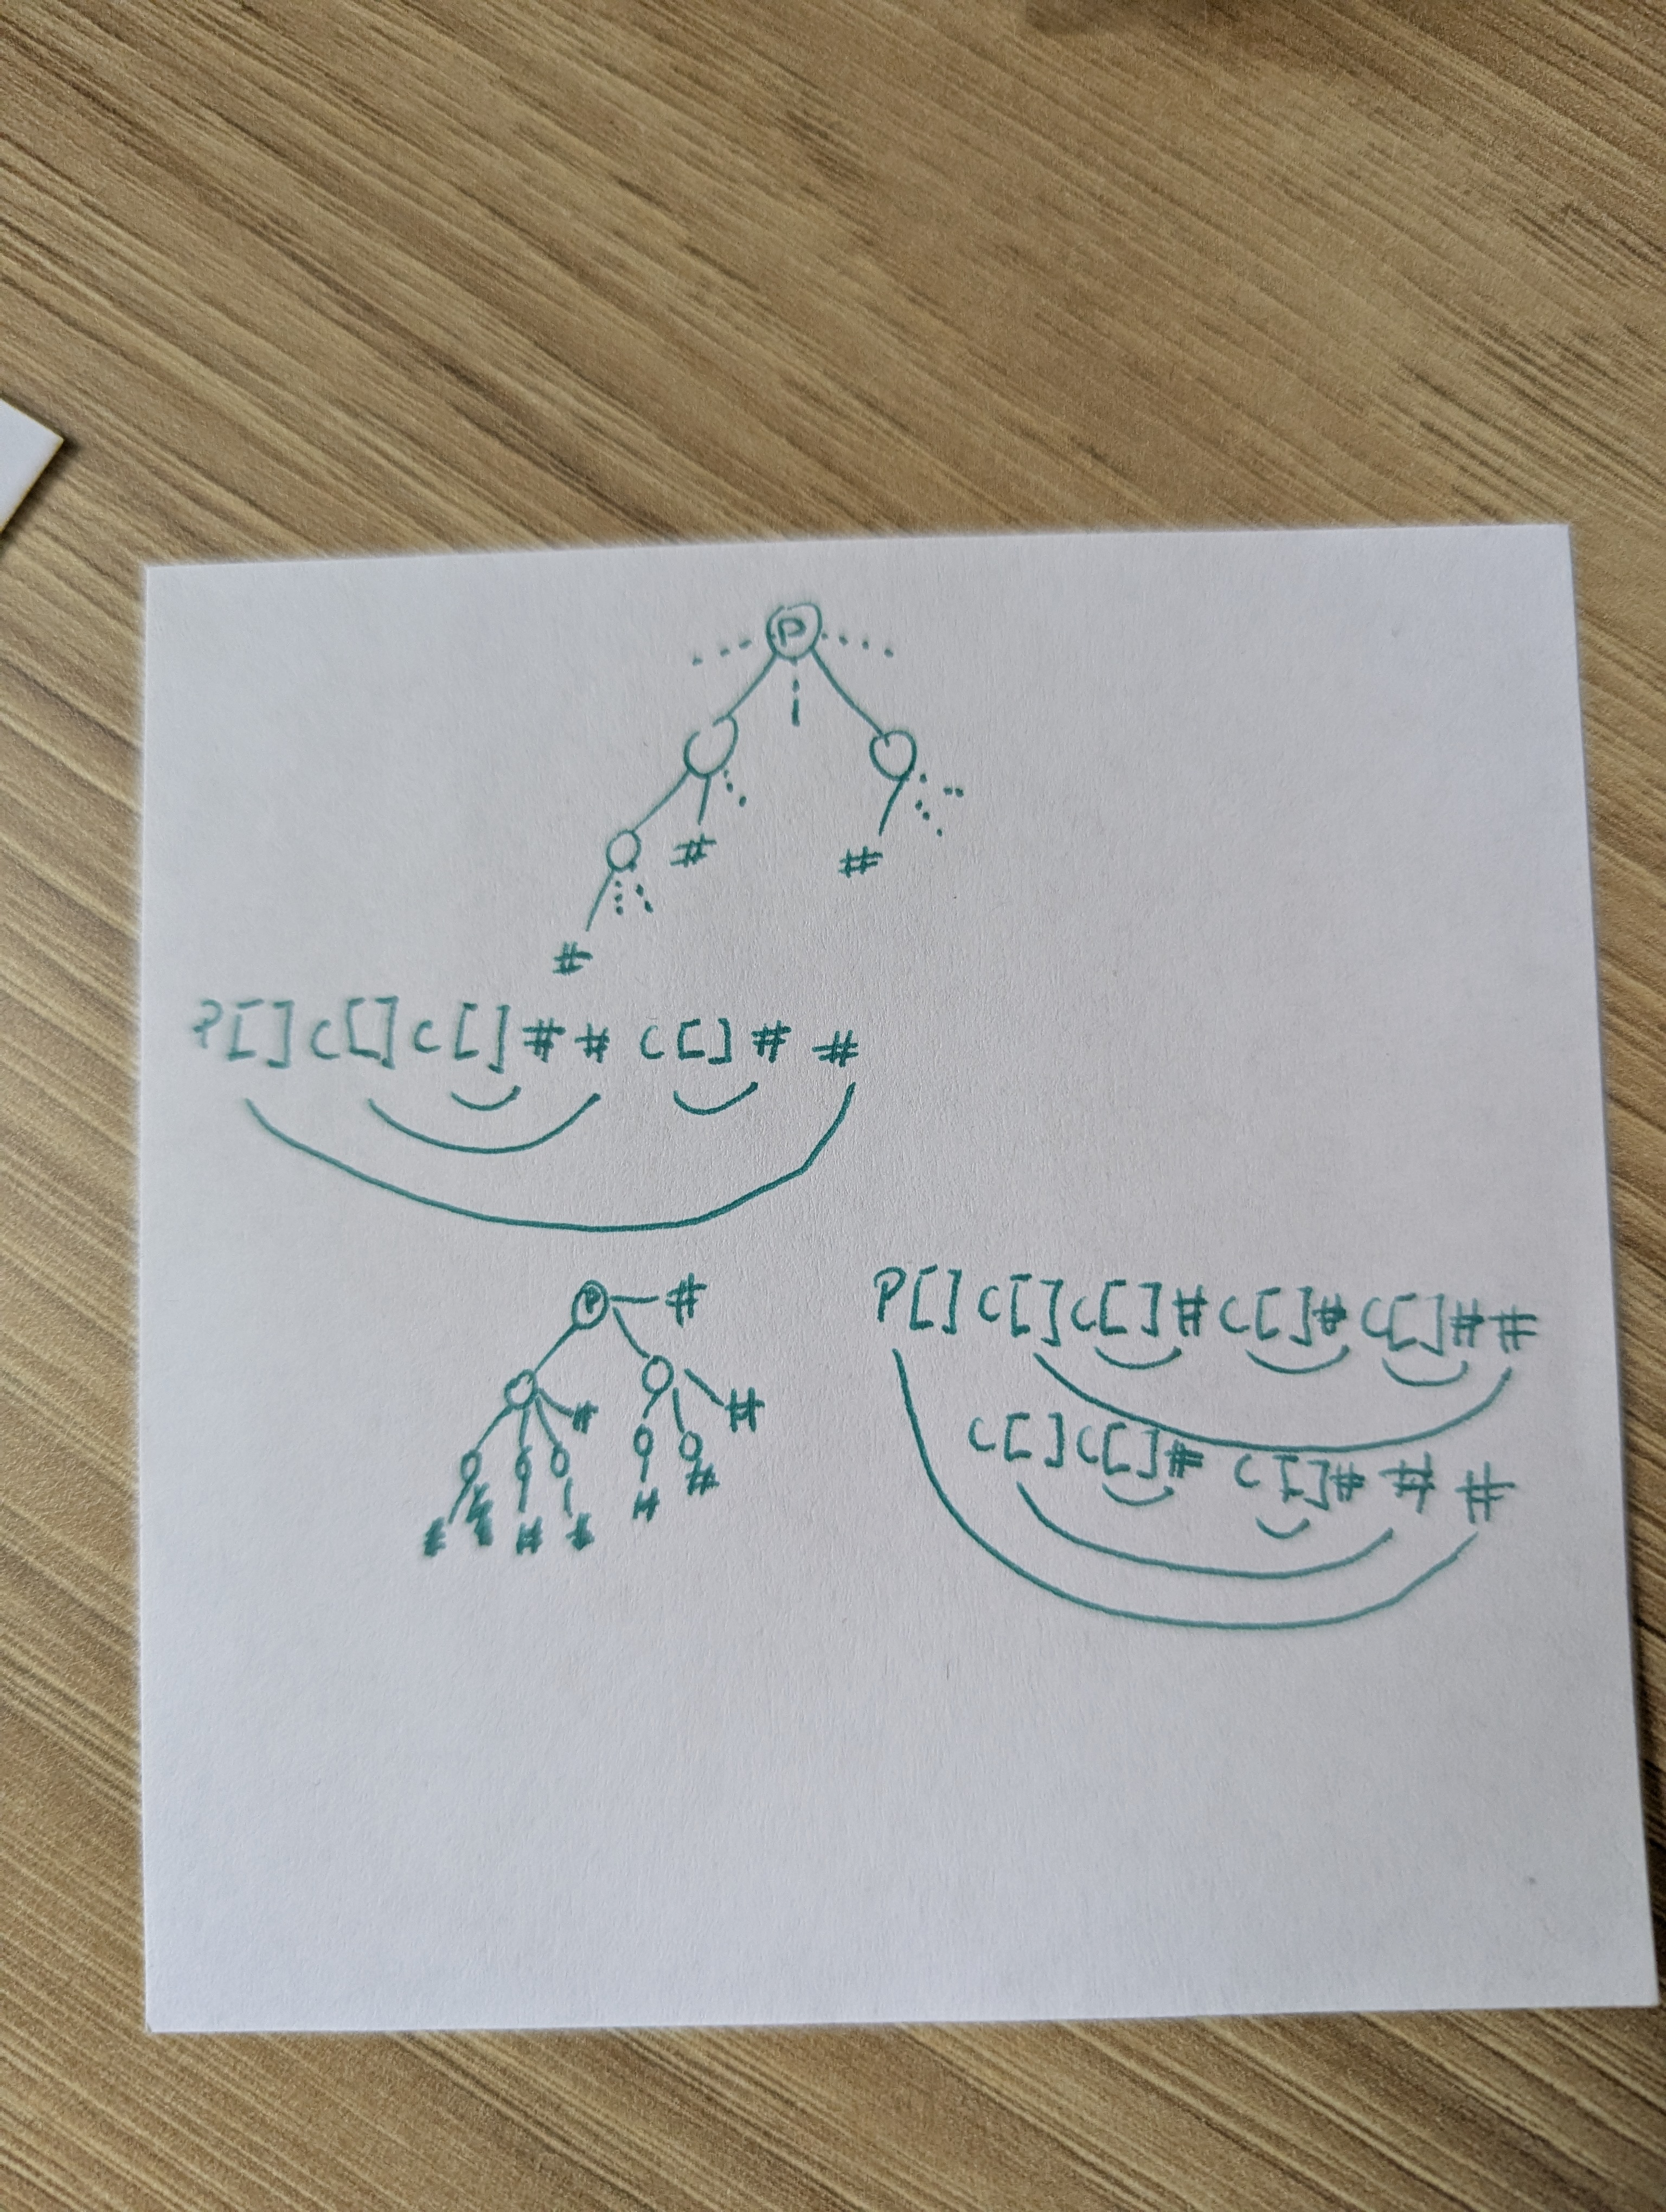 P
#
#
#
P[] C[] C[] # # C[] # #
P #
#
#
# # # #
#
#
P[] C[] C[] # C[] # C[] # #
C[] C[] # C[] # # #